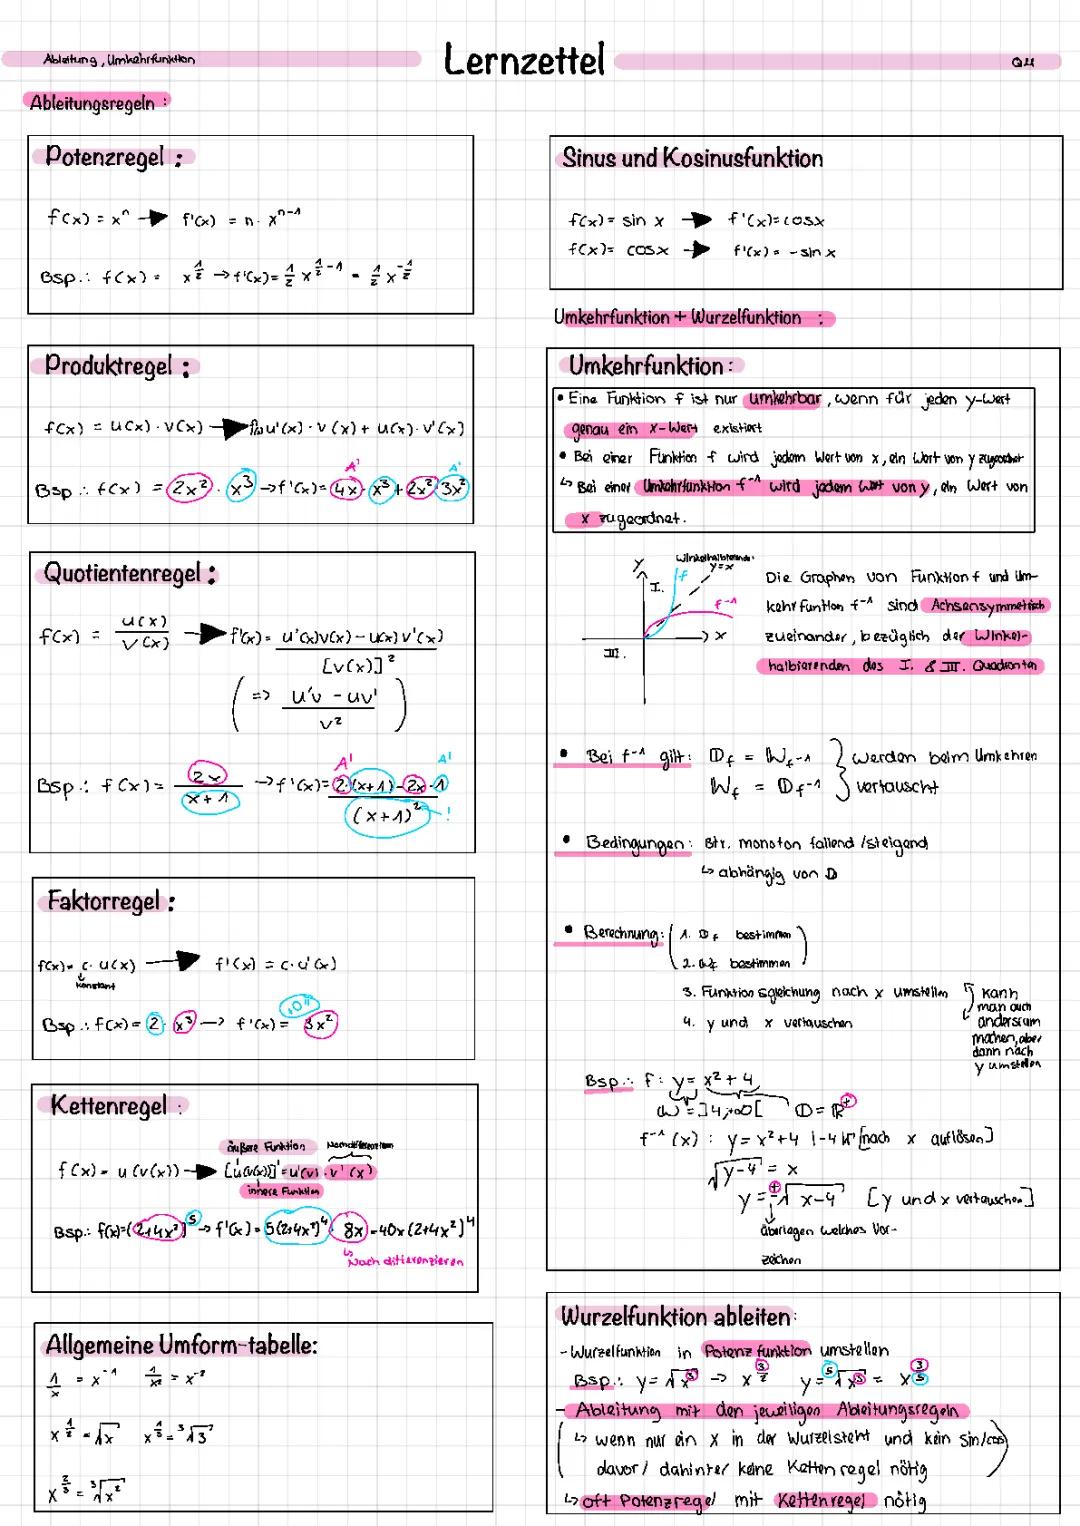 Ableitung, Umkehrfunktion
Lernzettel
Q4
Ableitungsregeln :
Potenzregel :
f(x) = xⁿ → f'(x) = n · xⁿ⁻¹
Bsp.: f(x) = x^½ → f'(x) = ½ x^(½-1) = ½ x^(-½)
Produktregel :
f(x) = u(x) · v(x) → u'(x) · v(x) + u(x) · v'(x)
A' A'
Bsp.: f(x) = 2x² · x³ → f'(x) = 4x · x³ + 2x² · 3x²
Quotientenregel :
f(x) = u(x) / v(x) → f'(x) = u'(x)v(x) - u(x)v'(x) / [v(x)]²
( => u'v - uv' / v² )
A' A'
Bsp.: f(x) = 2x / x+1 → f'(x) = 2·(x+1) - 2x·1 / (x+1)² !
Faktorregel :
f(x) = c · u(x) → f'(x) = c · u'(x)
konstant
Bsp.: f(x) = 2 · x³ → f'(x) = 3x²
"0"
Kettenregel :
äußere Funktion Nachdifferenzieren
f(x) = u(v(x)) → [u(v(x))]' = u'(v) · v'(x)
innere Funktion
Bsp.: f(x) = (2+4x²)⁵ → f'(x) = 5(2+4x²)⁴ · 8x = 40x(2+4x²)⁴
↳ Nach differenzieren
Allgemeine Umform-tabelle:
1/x = x⁻¹ 1/x² = x⁻²
x^½ = √x x^⅓ = ³√3
x^⅔ = ³√x²
Sinus und Kosinusfunktion
f(x) = sin x → f'(x) = cosx
f(x) = cosx → f'(x) = -sin x
Umkehrfunktion + Wurzelfunktion :
Umkehrfunktion :
• Eine Funktion f ist nur umkehrbar, wenn für jeden y-Wert
genau ein x-Wert existiert
• Bei einer Funktion f wird jedem Wert von x, ein Wert von y zugeordnet
↳ Bei einer Umkehrfunktion f⁻¹ wird jedem Wert von y, ein Wert von
x zugeordnet.
Winkelhalbierende
y=x
y
I.
f
f⁻¹
x
III.
Die Graphen von Funktion f und Um-
kehrfunktion f⁻¹ sind Achsensymmetrisch
zueinander, bezüglich der Winkel-
halbierenden des I. & III. Quadranten
• Bei f⁻¹ gilt: 𝔻f = 𝕎f⁻¹ } werden beim Umkehren
𝕎f = 𝔻f⁻¹ } vertauscht
• Bedingungen: str. monoton fallend /steigend
↳ abhängig von 𝔻
• Berechnung: ( 1. 𝔻f bestimmen
2. 𝕎f bestimmen )
3. Funktionsgleichung nach x umstellen
4. y und x vertauschen
kann
man auch
andersrum
machen, aber
dann nach
y umstellen
Bsp.: f: y = x² + 4
𝕎 = ]4;+∞[ 𝔻 = ℝ⁺
f⁻¹(x) : y = x²+4 |-4 |√ [nach x auflösen]
√y-4 = x
y = ±√x-4 [y und x vertauschen]
überlegen welches Vor-
zeichen
Wurzelfunktion ableiten:
- Wurzelfunktion in Potenzfunktion umstellen
Bsp.: y = √x³ → x^(3/2) y = ⁵√x³ = x^(3/5)
- Ableitung mit den jeweiligen Ableitungsregeln
↳ wenn nur ein x in der Wurzel steht und kein sin/cos
davor/ dahinter keine Kettenregel nötig
↳ oft Potenzregel mit Kettenregel nötig